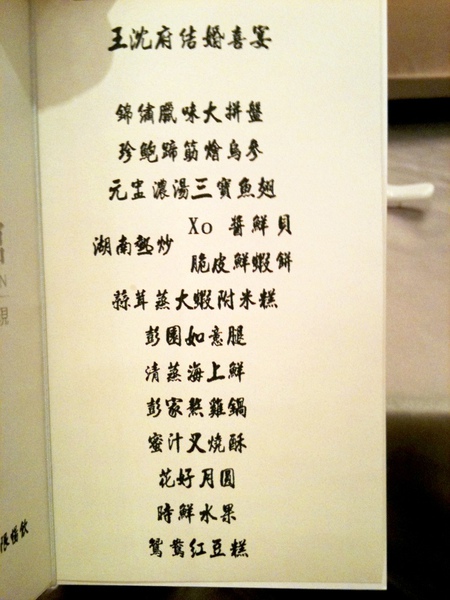 王沈府結婚喜宴
錦繡臘味大拼盤
珍鮑蹄筋燴烏參
元盅濃湯三寶魚翅
湖南熱炒
Xo 醬鮮貝
脆皮鮮蝦餅
蒜茸蒸大蝦附米糕
彭園如意腿
清蒸海上鮮
彭家熬雞鍋
蜜汁叉燒酥
花好月圓
時鮮水果
鴛鴦紅豆糕